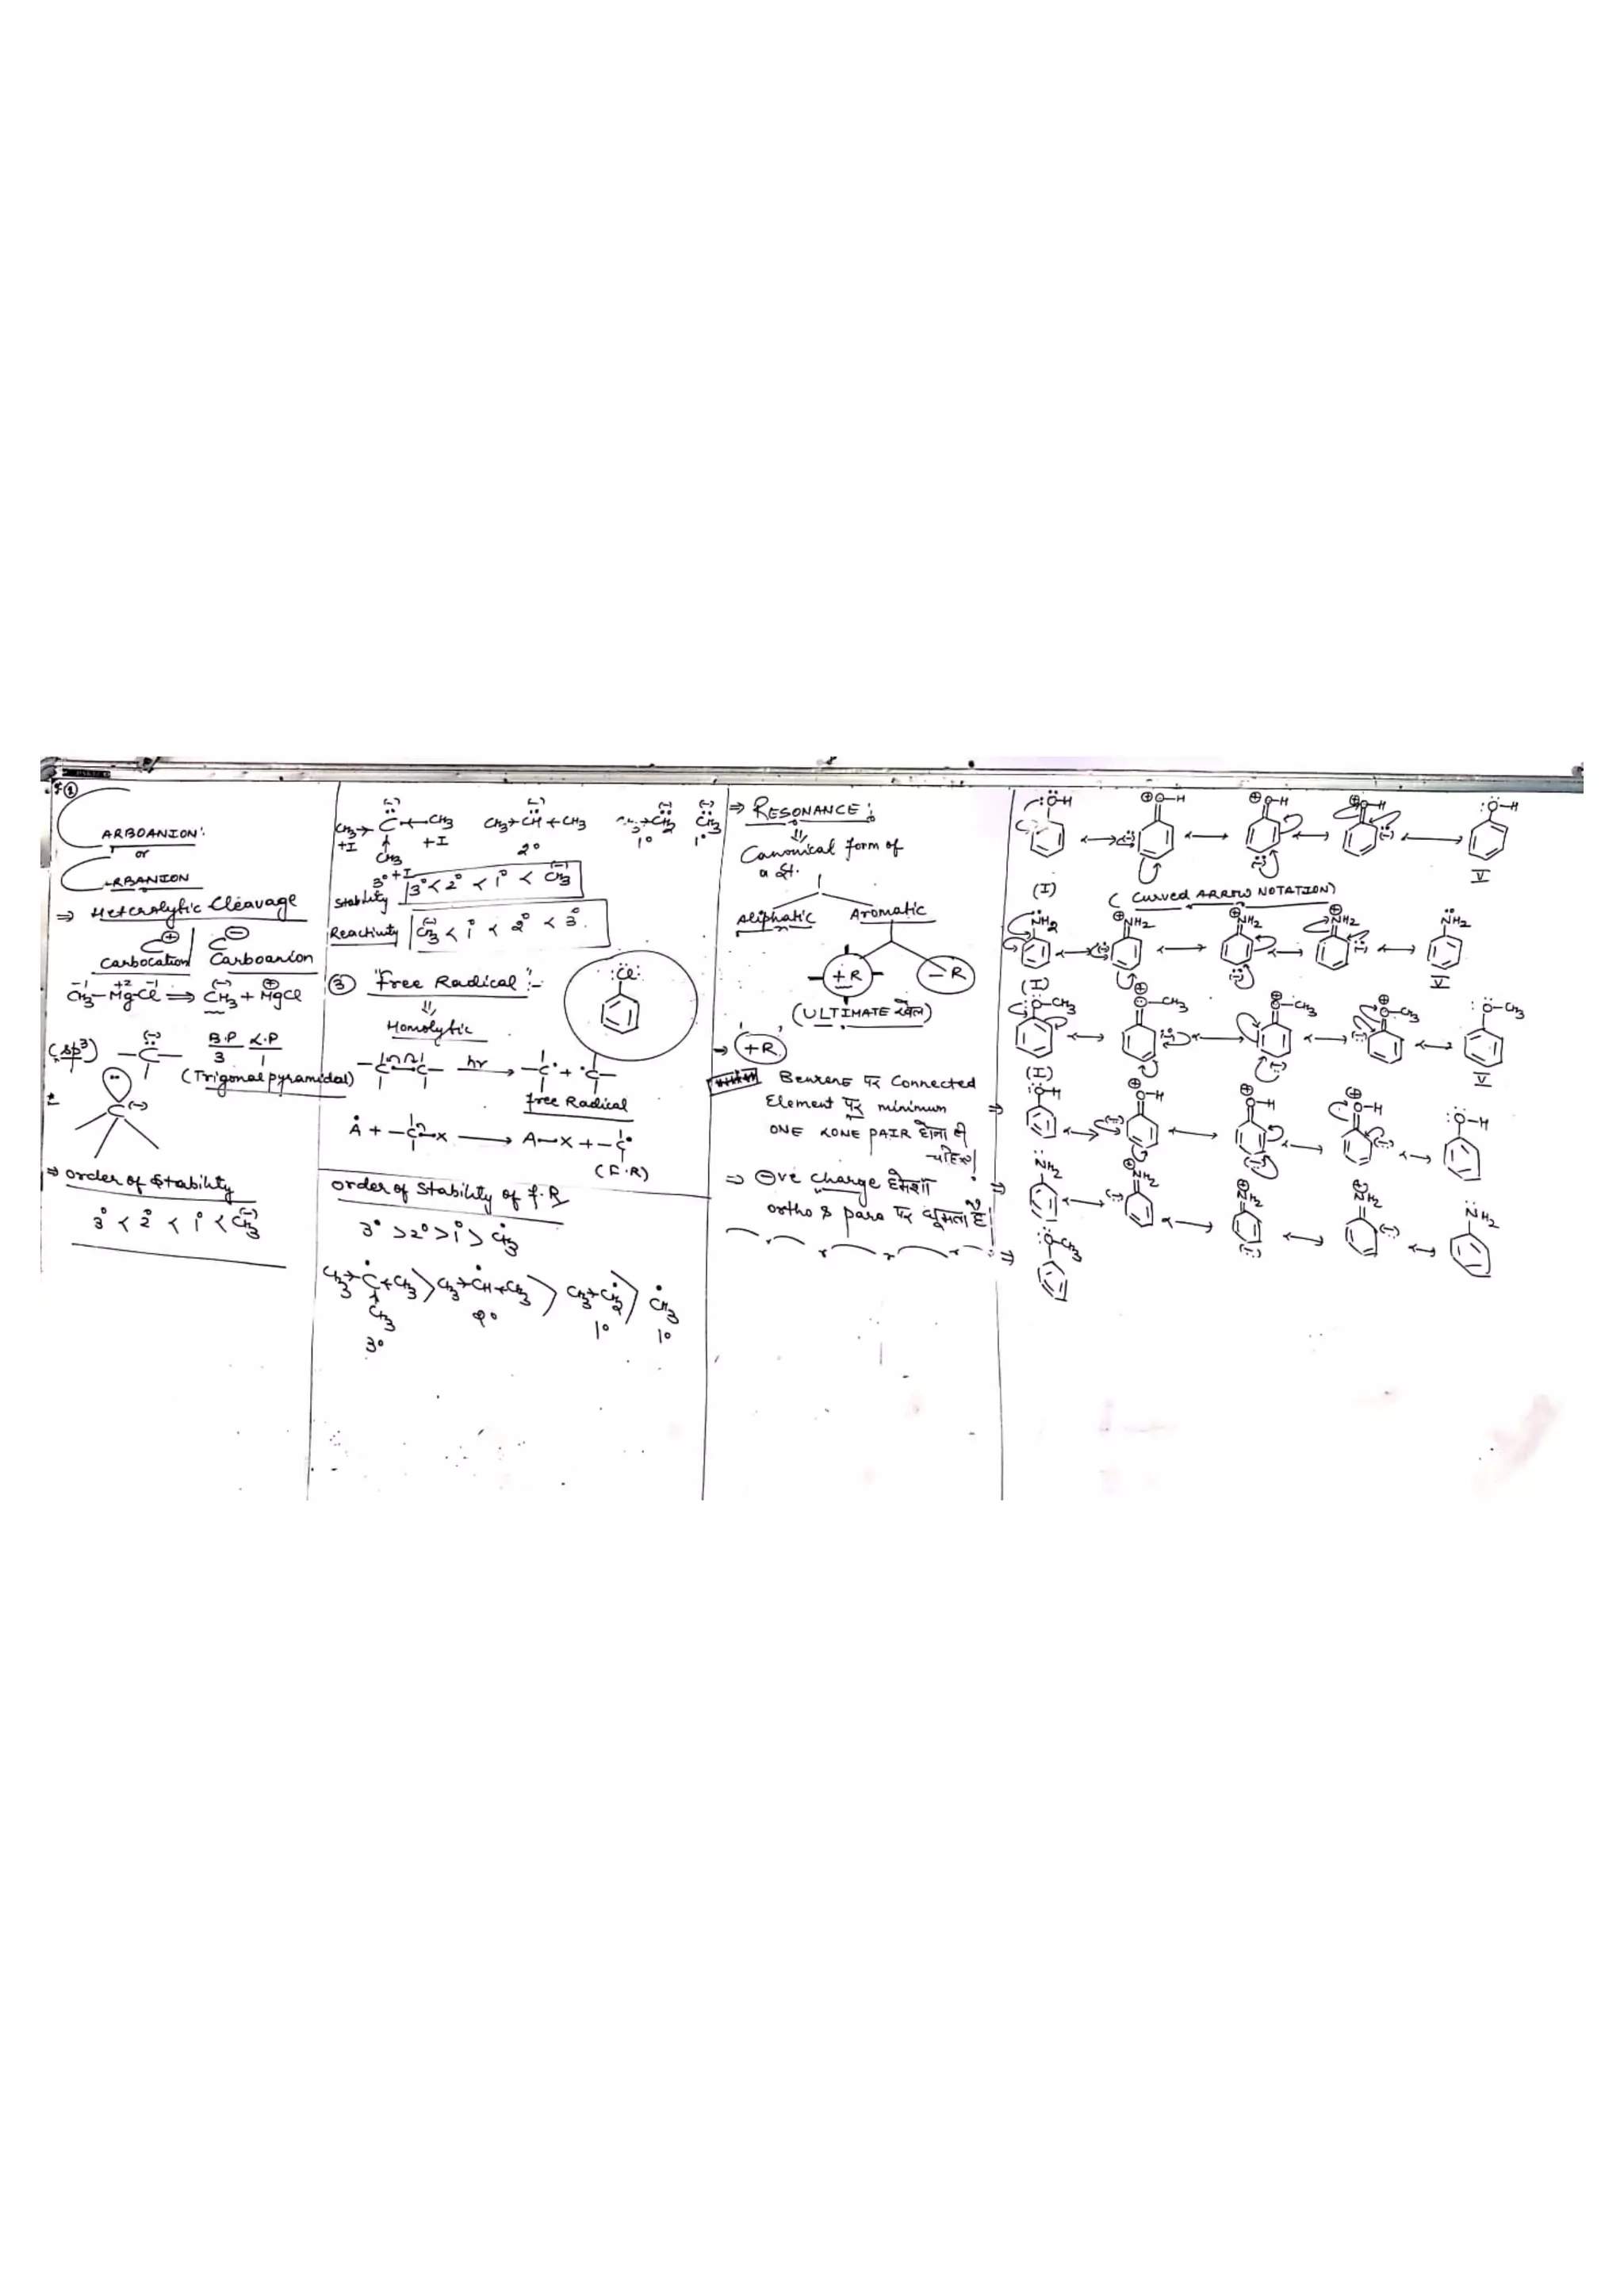 ①
CARBOANION:
or
CARBANION
⇒ Heterolytic Cleavage
C⊕ | C⊖
Carbocation | Carboanion
CH3–Mg–Cl ⇒ CH3 + MgCl
-1 +2 -1 (-) ⊕
(sp³) –C– B.P L.P
3 1
(Trigonal pyramidal)
C(-)
⇒ Order of Stability
3° < 2° < 1° < CH3(-)
CH3 → C ← CH3
+I +I
CH3
3° +I
CH3→CH←CH3
2°
→CH2
1°
CH3
1°
Stability 3° < 2° < 1° < CH3(-)
Reactivity CH3(-) < 1° < 2° < 3°.
③ "Free Radical":-
Homolytic
–C–C– hν → –C• + •C–
Free Radical
A• + –C–X → A–X + –C•
(F.R)
:Cl:
Order of Stability of f.R
3° > 2° > 1° > CH3
CH3→C←CH3 > CH3→CH←CH3 > CH3→CH2 > CH3
CH3
3° 2° 1° 1°
⇒ RESONANCE:
Canonical form of
a st.
Aliphatic Aromatic
+R –R
(ULTIMATE खेल)
→ +R
Benzene पर Connected
Element पर minimum
ONE LONE PAIR होना ही
चाहिए!
⇒ ⊖ve charge हमेशा
ortho & para पर घूमता है!
:Ö–H ↔ ⊕O–H ↔ ⊕O–H ↔ ⊕O–H ↔ :Ö–H
(I) V
(Curved ARROW NOTATION)
N̈H2 ↔ ⊕NH2 ↔ ⊕NH2 ↔ ⊕NH2 ↔ N̈H2
(I) V
:Ö–CH3 ↔ ⊕O–CH3 ↔ ⊕O–CH3 ↔ ⊕O–CH3 ↔ :Ö–CH3
(I) V
⇒ :Ö–H ↔ ⊕O–H ↔ ⊕O–H ↔ ⊕O–H ↔ :Ö–H
⇒ :NH2 ↔ ⊕NH2 ↔ ⊕NH2 ↔ ⊕NH2 ↔ :NH2
⇒ :Ö–CH3